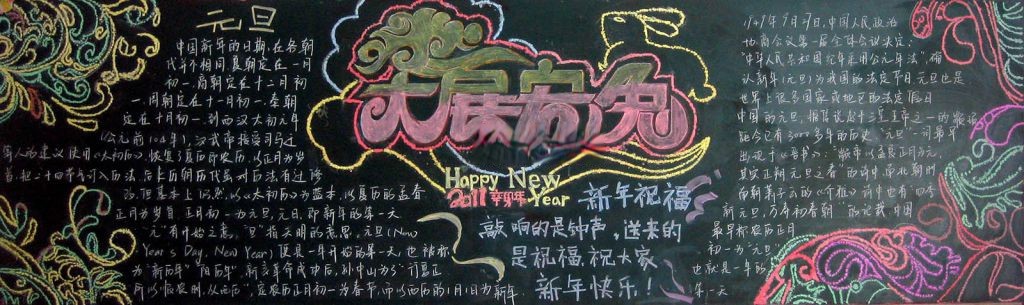 元旦
中国新年的日期,在各朝
代并不相同。夏朝定在一月
初一,商朝定在十二月初
一,周朝定在十一月初一,秦朝
定在十月初一,到西汉太初元年
(公元前104年),汉武帝接受司马迁
等人的建议使用《太初历》,恢复了夏历即农历,以正月为岁
首,把二十四节气订入历法。后来历朝历代虽对历法有过修
改,但基本上仍然以《太初历》为蓝本,以夏历的孟春
正月为岁首,正月初一为元旦,元日,即新年的第一天
"元"有开始之意,"旦"指天明的意思。元旦(New
Year's Day, New Year)便是一年开始的第一天,也被称
为"新历年""阳历年"。辛亥革命成功后,孙中山为了"行夏正
所以顺农时,从西历",定农历正月初一为春节,而以西历的1月1日为新年。
大展宏兔
Happy New
2011 辛卯年 Year
新年祝福
敲响的是钟声,送来的
是祝福,祝大家
新年快乐!
1949年9月27日,中国人民政治
协商会议第一届全体会议决定:
"中华人民共和国纪年采用公元年法",确
认新年(元旦)为我国的法定节日。元旦也是
世界上很多国家或地区的法定假日
中国的元旦,据传说起于三皇五帝之一的颛顼
距今已有3000多年的历史。"元旦"一词最早
出现于《晋书》:"颛帝以孟春正月为元,
其实正朔元旦之春"的诗中。南北朝时
南朝萧子云的《介雅》诗中也有"四季
新元旦,万寿初春朝"的记载。中国
最早称农历正月
初一为"元旦"
也就是一年的
第一天